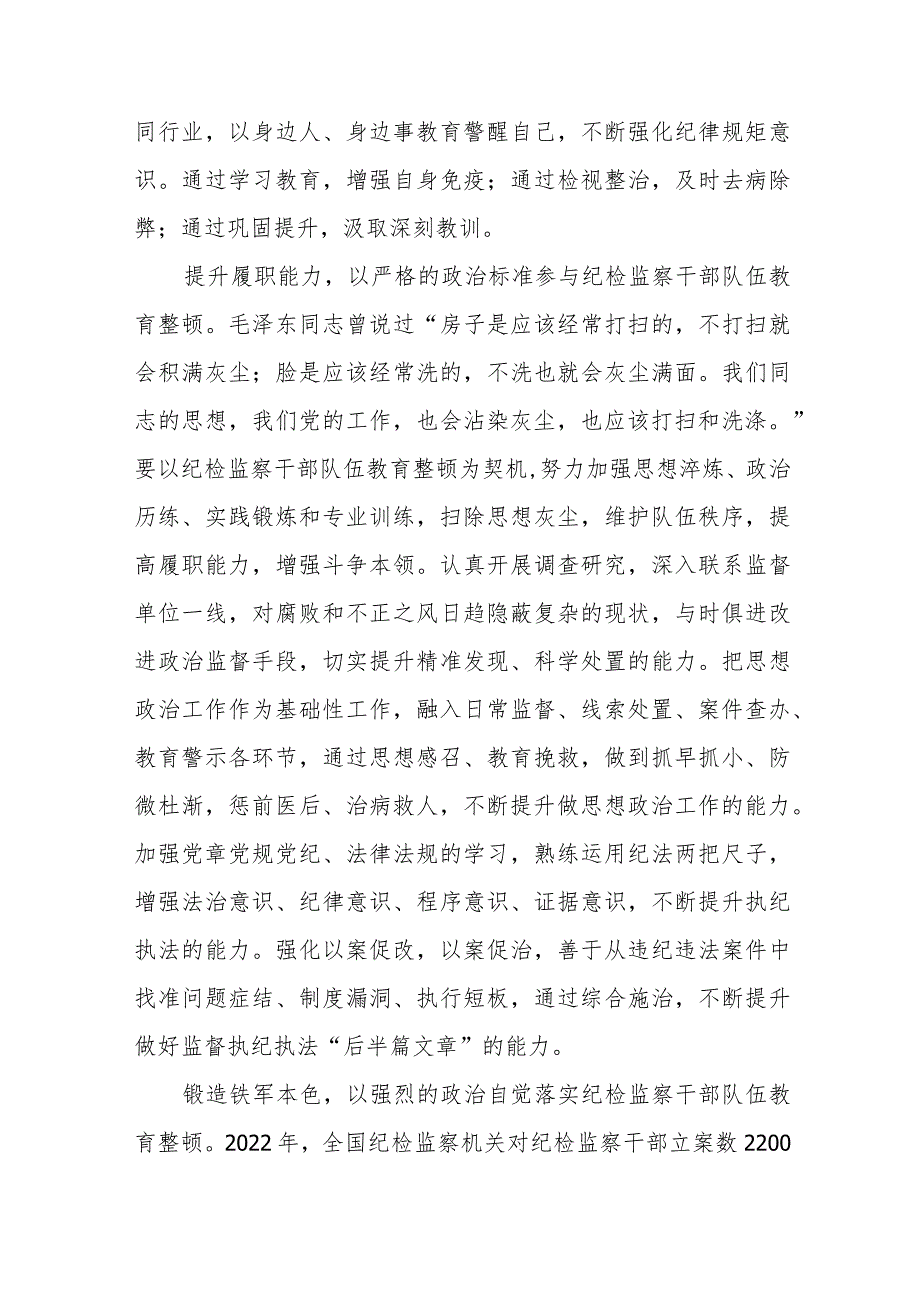 同行业，以身边人、身边事教育警醒自己，不断强化纪律规矩意
识。通过学习教育，增强自身免疫；通过检视整治，及时去病除
弊；通过巩固提升，汲取深刻教训。
提升履职能力，以严格的政治标准参与纪检监察干部队伍教
育整顿。毛泽东同志曾说过“房子是应该经常打扫的，不打扫就
会积满灰尘；脸是应该经常洗的，不洗也就会灰尘满面。我们同
志的思想，我们党的工作，也会沾染灰尘，也应该打扫和洗涤。”
要以纪检监察干部队伍教育整顿为契机,努力加强思想淬炼、政治
历练、实践锻炼和专业训练，扫除思想灰尘，维护队伍秩序，提
高履职能力，增强斗争本领。认真开展调查研究，深入联系监督
单位一线，对腐败和不正之风日趋隐蔽复杂的现状，与时俱进改
进政治监督手段，切实提升精准发现、科学处置的能力。把思想
政治工作作为基础性工作，融入日常监督、线索处置、案件查办、
教育警示各环节，通过思想感召、教育挽救，做到抓早抓小、防
微杜渐，惩前医后、治病救人，不断提升做思想政治工作的能力。
加强党章党规党纪、法律法规的学习，熟练运用纪法两把尺子，
增强法治意识、纪律意识、程序意识、证据意识，不断提升执纪
执法的能力。强化以案促改，以案促治，善于从违纪违法案件中
找准问题症结、制度漏洞、执行短板，通过综合施治，不断提升
做好监督执纪执法“后半篇文章”的能力。
锻造铁军本色，以强烈的政治自觉落实纪检监察干部队伍教
育整顿。2022年，全国纪检监察机关对纪检监察干部立案数2200